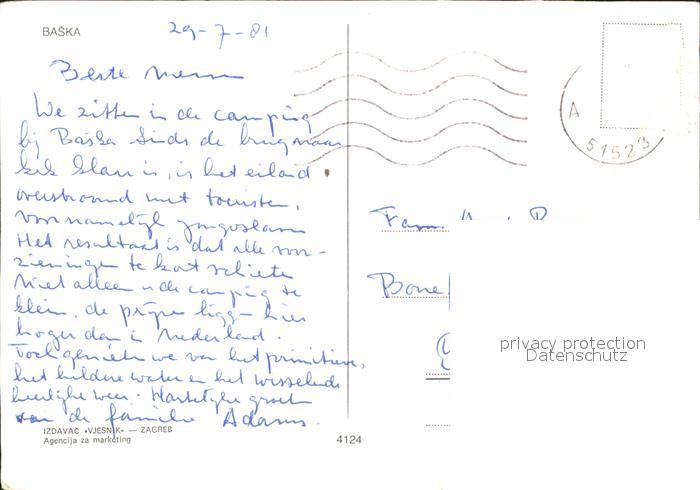 BAŠKA
29-7-81
Beste mensen
We zitten in de camping
bij Baška Sinds de brug naar
Krk klaar is, is het eiland
overstroomd met toeristen,
voornamelijk yougoslaven
Het resultaat is dat alle voor-
zieningen te kort schieten
Niet alleen is de camping te
klein, de prijzen liggen hier
hoger dan in Nederland.
Toch genieten we van het primitieve,
het heldere water en het wisselende
heerlijke weer. Hartelijke groeten
van de familie Adams.
IZDAVAČ «VJESNIK» — ZAGREB
Agencija za marketing
4124
A
51523
Fam.
privacy protection
Datenschutz